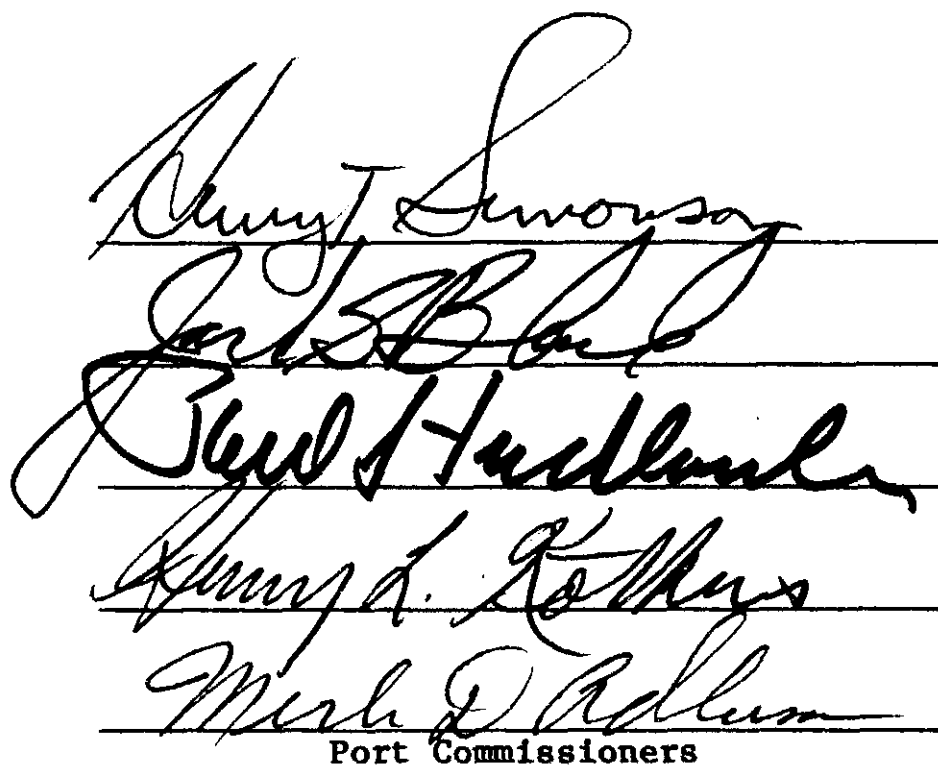 Henry T Simonson
Jack S Block
Paul S Friedlander
Henry L. Kotkins
Merle D Adlum
Port Commissioners